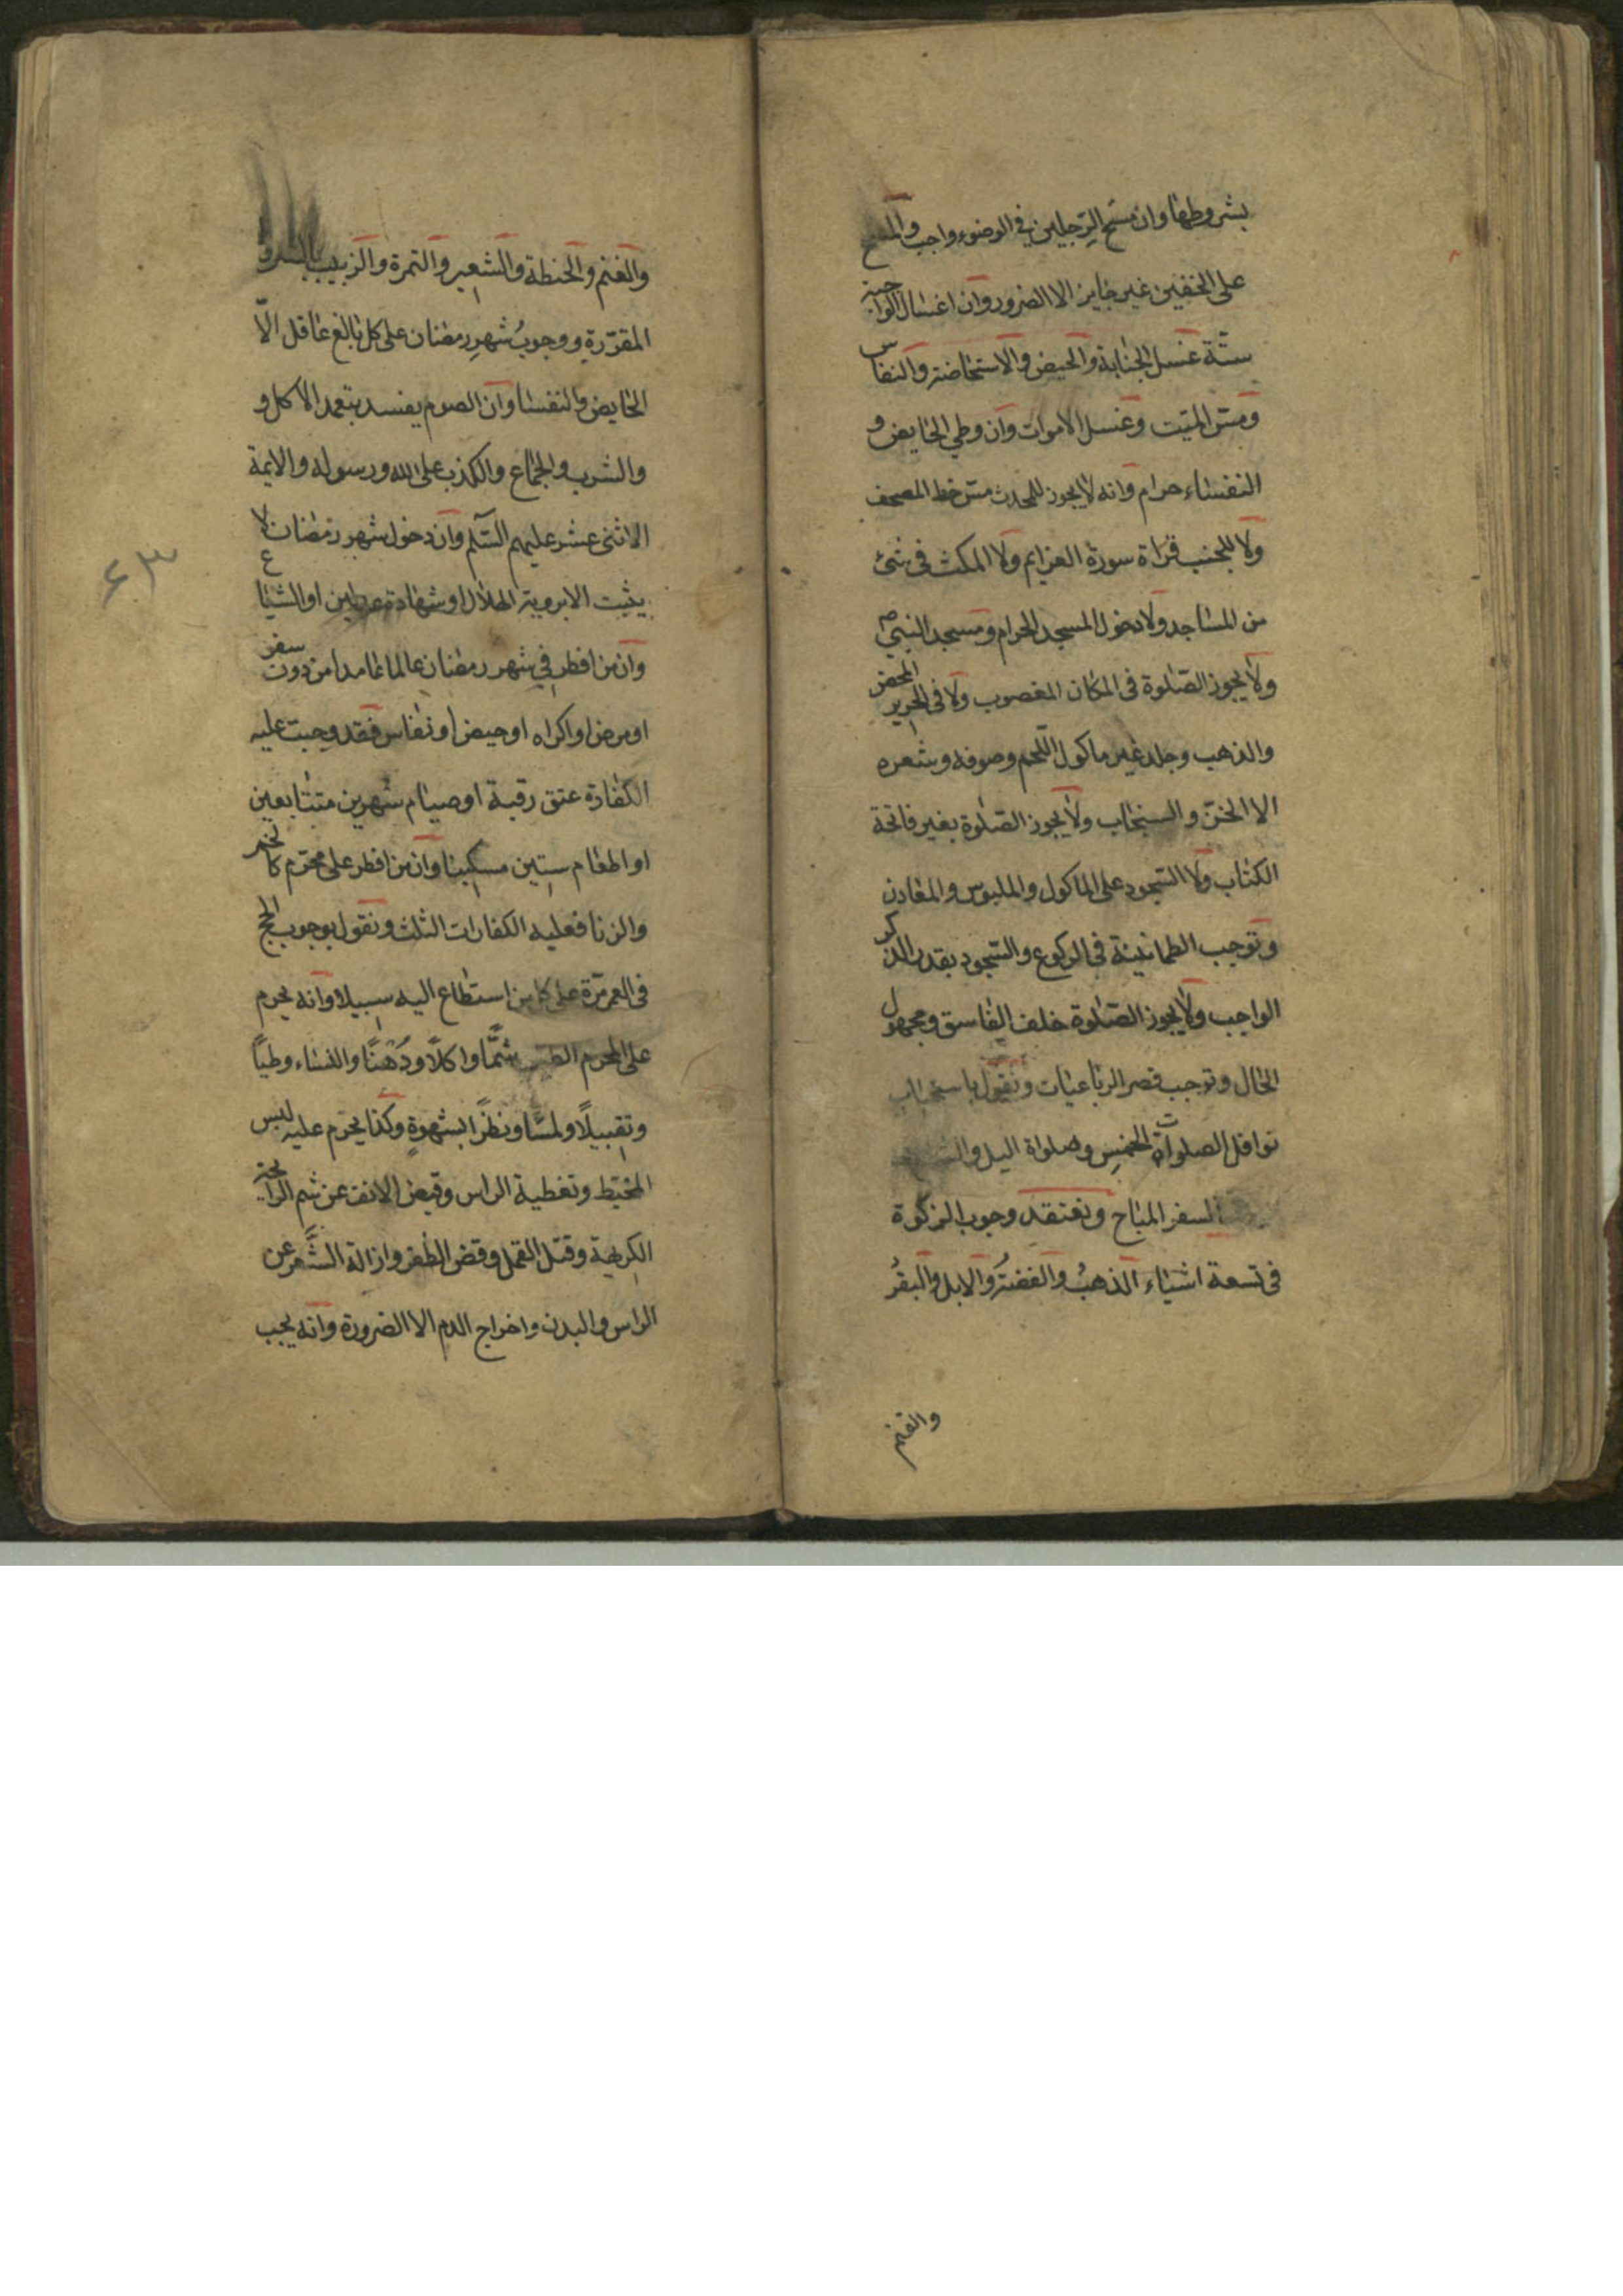 بشروطها وان مسح الرجلين في الوضوء واجب والمسح
على الخفين غير جايز الا الضرور وان اغسال الواجبة
ستة غسل الجنابة والحيض والاستحاضة والنفاس
ومس الميت وغسل الاموات وان وطي الحايض و
النفساء حرام وانه لا يجوز للمحدث مس خط المصحف
ولا للجنب قراة سورة العزايم ولا المكث في شئ
من المساجد ولا دخول المسجد الحرام ومسجد النبي ص
ولا يجوز الصلوة في المكان المغصوب ولا في الحرير المحض
والذهب وجلد غير ماكول اللحم وصوفه وشعره
الا الخز والسنجاب ولا يجوز الصلوة بغير فاتحة
الكتاب ولا السجود على الماكول والملبوس والمعادن
وتوجب الطمانينة في الركوع والسجود بقدر الذكر
الواجب ولا يجوز الصلوة خلف الفاسق ومجهول
الحال وتوجب قصر الرباعيات ونقول باستحباب
نوافل الصلوات الخمس وصلواة اليل
السفر المباح ونعتقد وجوب الزكوة
في تسعة اشياء الذهب والفضة والابل والبقر
والغنم
والغنم والحنطة والشعير والتمرة والزبيب بالشرو
المقررة ووجوب شهر رمضان على كل بالغ عاقل الا
الحايض والنفسا وان الصوم يفسد بتعمد الاكل و
والشرب والجماع والكذب على الله ورسوله والايمة
الاثنى عشر عليهم السلم وان دخول شهر رمضان لا
يثبت الا بروية الهلال او شهادة عدلين او الشياع
وان من افطر في شهر رمضان عالما عامدا من دون سفر
او مرض او اكراه او حيض او نفاس فقد وجبت عليه
الكفارة عتق رقبة او صيام شهرين متتابعين
او اطعام ستين مسكينا وان من افطر على محرم كالخمر
والزنا فعليه الكفارات الثلث ونقول بوجوب الحج
في العمر مرة على كل من استطاع اليه سبيلا وانه يحرم
على المحرم الطيب شمًّا واكلًا ودهنًا والنساء وطيًا
وتقبيلًا ولمسًا ونظرًا بشهوةٍ وكذا يحرم عليه لبس
المخيط وتغطية الراس وقبض الانف عن شم الرايحة
الكريهة وقتل القمل وقص الظفر وازالة الشعر عن
الراس والبدن واخراج الدم الا الضرورة وانه يجب
۶۳